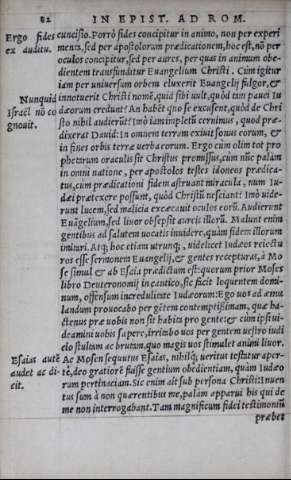 82 IN EPIST. AD ROM.
Ergo fides
ex auditu.
cunctio. Porrò fides concipitur in animo, non per experi
menta, sed per apostolorum prædicationem, hoc est, nõ per
oculos concipitur, sed per aures, per quas in animum obe-
dientem transfunditur Euangelium Christi. Cum igitur
iam per uniuersum orbem eluxerit Euangelij fulgor, &
Nunquid
Israël nõ co
gnouit.
innotuerit Christi nomē, quid sibi uult, quòd tam pauci Iu
dæorum credunt? An habēt quo se excusent, quòd de Chri
sto nihil audierūt? Imò iam impletū cernimus, quod præ-
dixerat Dauid: In omnem terram exiuit sonus eorum, &
in fines orbis terræ uerba eorum. Ergo cùm olim tot pro
phetarum oraculis sit Christus promissus, cùm nūc palàm
in omni natione, per apostolos testes idoneos prædica-
tus, cùm prædicationi fidem astruant miracula, num Iu-
dæi prætexere possunt, quòd Christū nesciant? Imò uide-
runt lucem, sed malicia excæcauit oculos eorū. Audierunt
Euāgelium, sed liuor obsepsit aureis illorū. Malunt enim
gentibus ad salutem uocatis inuidere, quàm fidem illorum
imitari. Atq; hoc etiam utrunq;, uidelicet Iudæos reiectu
ros esse sermonem Euangelij, & gentes recepturas, à Mo
se simul & ab Esaia prædictum est: quorum prior Moses
libro Deuteronomij in cantico, sic facit loquentem domi-
num, offensum incredulitate Iudæorum: Ego uos ad æmu
landum prouocabo per gētem contemptissimam, quæ ha-
ctenus præ uobis non sit habita pro gente: & cùm ipsi ui-
deamini uobis sapere, irritabo uos per gentem uestro iudi
cio stultam ac brutam, quo magis uos stimulet animi liuor.
Esaias autē
audet ac di-
cit.
Ac Mosen sequutus Esaias, nihilq; ueritus testatur aper-
tè, deo gratiorē fuisse gentium obedientiam, quàm Iudæo
rum pertinaciam. Sic enim ait sub persona Christi: Inuen
tus sum à non quærentibus me, palàm apparui his qui de
me non interrogabant. Tam magnificum fidei testimoniū
præbet